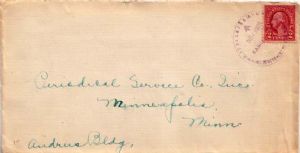 Periodical Service Co, Inc.
Minneapolis,
Minn
Andrus Bldg.